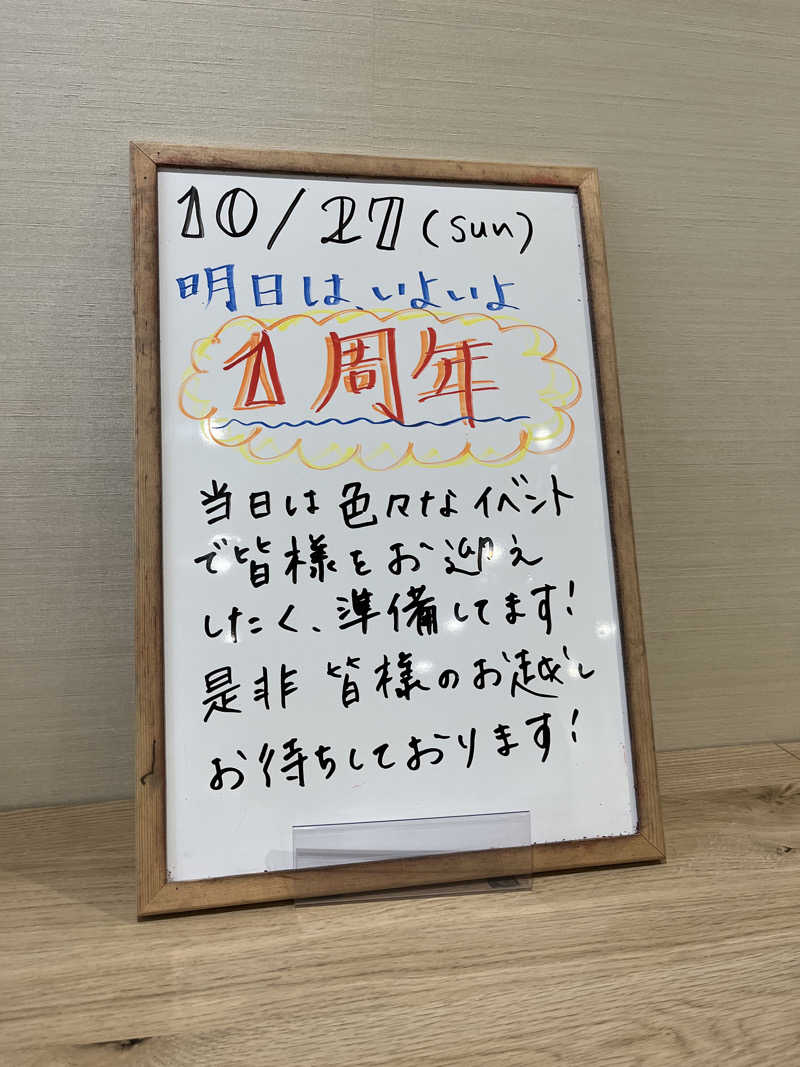 10/27(sun)
明日は、いよいよ
1周年
当日は色々なイベント
で皆様をお迎え
したく、準備してます!
是非 皆様のお越し
お待ちしております!